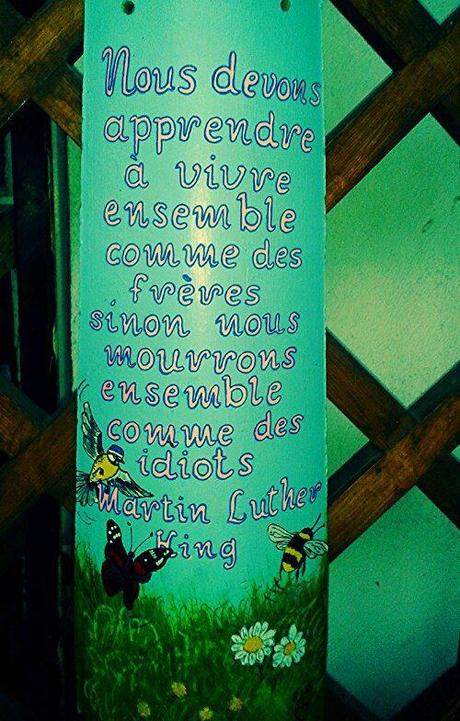 Nous devons
apprendre
à vivre
ensemble
comme des
frères
sinon nous
mourrons
ensemble
comme des
idiots
Martin Luther
King